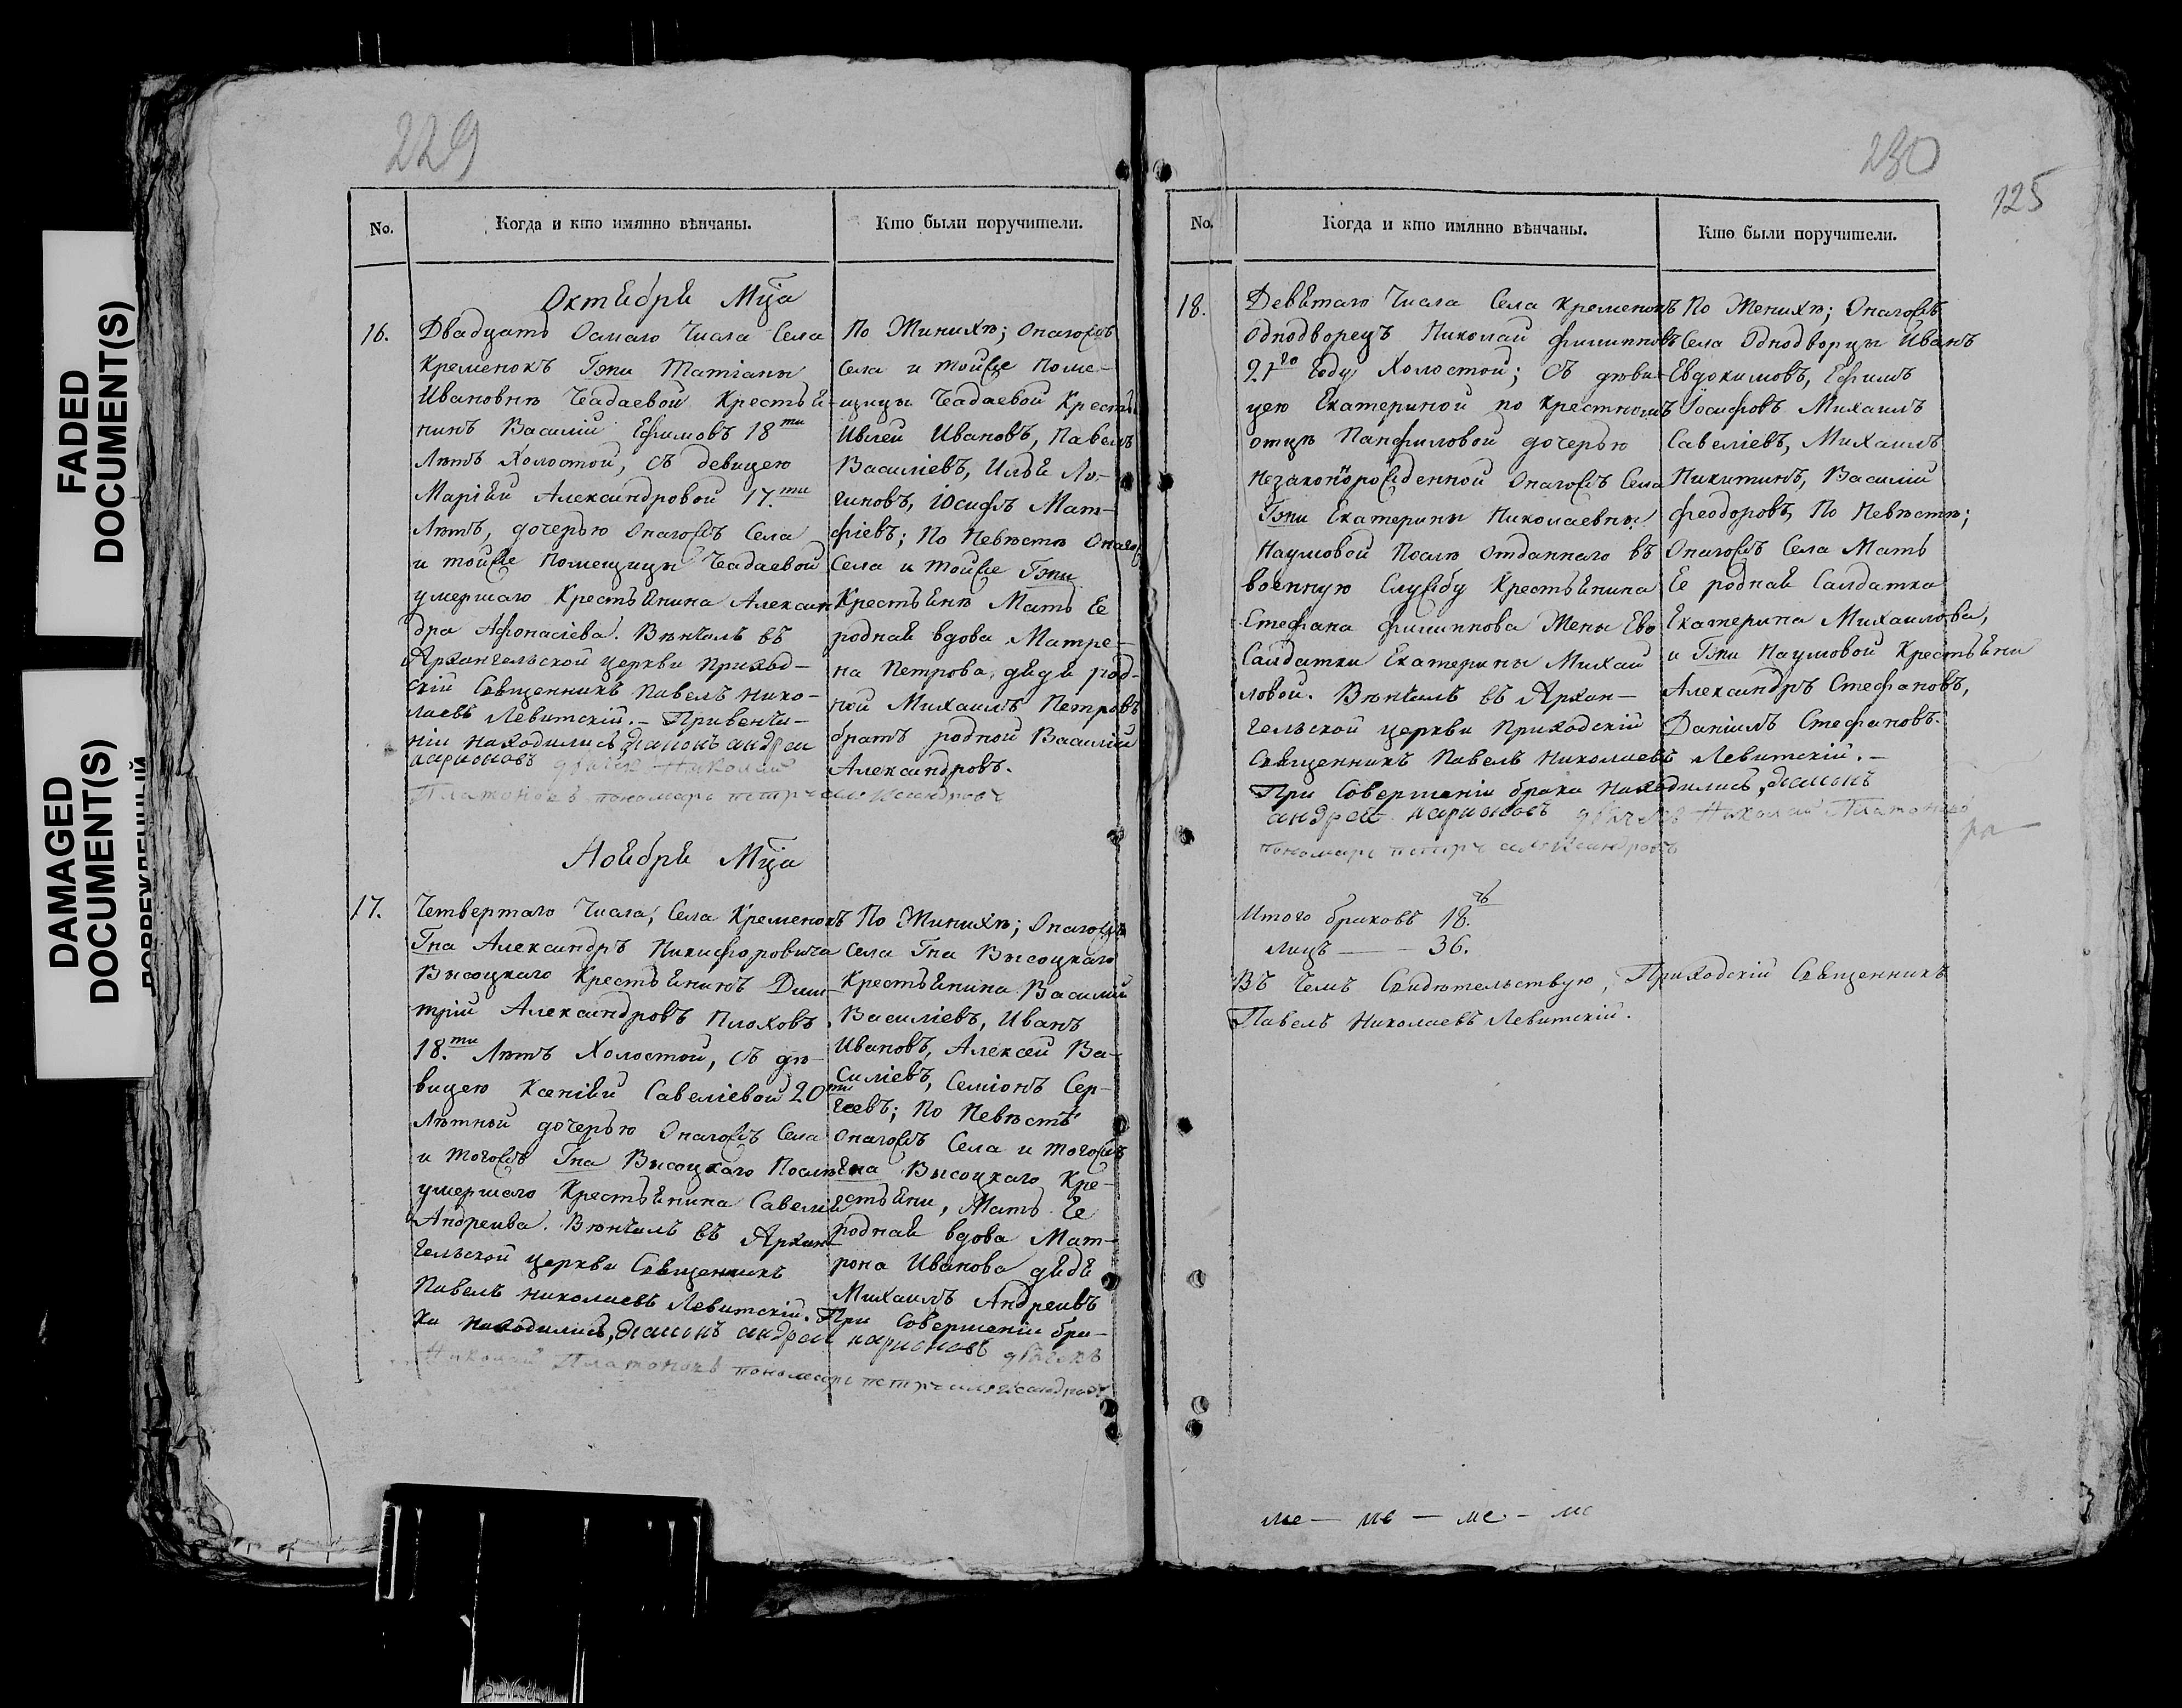 FADED
DOCUMENT(S)
DAMAGED
DOCUMENT(S)
229
No.
Когда и кто имянно вѣнчаны.
Кто были поручители.
Октября Мца
16.
Двадцать Осмаго Числа Села
Кременокъ Гжи Татіаны
Ивановнѣ Чадаевой Крестья-
нинъ Василій Ефимовъ 18ти
Лѣтъ Холостой, съ девицею
Маріей Александровой 17.ти
Лѣтъ, дочерью Онагожъ Села
и тойже Помещицы Чадаевой
умершаго Крестьянина Алексан
дра Афонасіева. Вѣнчалъ въ
Архангельской церкви Приход-
скій Священникъ Павелъ Нико-
лаевъ Левитскій.- При венча-
ніи находились диаконъ андреи
иарионовъ дьячекъ Николай
Платоновъ пономарь петръ александровъ
По Жинихѣ; Онагожъ
Села и тойже Поме-
щицы Чадаевой Кресть
Ивлей Ивановъ, Павелъ
Василіевъ, Илья Ло-
гиновъ, Іосифъ Мат-
фіевъ; По Невѣстѣ Онагож
Села и тойже Гжи
Крестьянѣ Мать Ее
родная вдова Матре-
на Петрова, дядя род-
ной Михаилъ Петровъ
братъ родной Василій
Александровъ.
Ноября Мца
17.
Четвертаго Числа, Села Кременокъ
Гна Александръ Никифоровича
Высоцкаго Крестьянинъ Дими-
трій Александровъ Плоховъ.
18.ти Лѣтъ Холостой, съ дѣ-
вицею Ксеніей Савеліевой 20ти
Лѣтней дочерью Онагожъ Села
и тогожъ Гна Высоцкаго Послѣ
умершаго Крестьянина Савелия
Андреива. Вѣнчалъ въ Архан-
гельской церкви Священникъ
Павелъ Николаевъ Левитскій. При Совершеніи бра-
ка находились, диаконъ андреи иарионовъ дьячекъ
Николай Платоновъ пономарь петръ александровъ
По Жинихѣ; Онагожъ
Села Гна Высоцкаго
Крестьянина Василій
Василіевъ, Иванъ
Ивановъ, Алексей Ва-
силіевъ, Семіонъ Сер-
геевъ; По Невѣстѣ
Онагожъ Села и тогожъ
Гна Высоцкаго Кре-
стьяни, Мать Ее
родная вдова Мат-
рона Иванова дядя
Михаилъ Андреивъ
230
125
No.
Когда и кто имянно вѣнчаны.
Кто были поручители.
18.
Девятаго Числа Села Кременокъ
Однодворецъ Николаи филипповъ
21го Году Холостой; Съ дѣви-
цею Екатериной по Крестномъ
отцѣ Панфиловой дочерью
Незаконнорожденной Онагожъ Села
Гжи Екатерины Николаевны
Наумовой Послѣ отданнаго въ
военную Службу Крестьянина
Стефана филиппова Жены Ево
Салдатки Екатерины Михаи
ловой. Вѣнчалъ въ Архан-
гельской церкви Приходскій
Священникъ Павелъ Николаевъ Левитскій.-
При Совершеніи брака находились, диаконъ
андреи иарионовъ дьячекъ Николай Платоновъ
пономарь петръ александровъ
По Женихѣ; Онагожъ
Села Однодворцы Иванъ
Евдокимовъ, Ефимъ
Іосифовъ Михаилъ
Савеліевъ, Михаилъ
Никитинъ, Василій
феодоровъ, По Невѣстѣ;
Онагожъ Села Мать
Ее родная Салдатка
Екатерина Михаилова,
и Гжи Наумовой Крестьяни
Александръ Стефановъ,
Даніилъ Стефановъ.
Итого браковъ 18.ть
лицъ —— 36.
Въ Чемъ Свидѣтельствую, Приходскій Священникъ
Павелъ Николаевъ Левитскій.